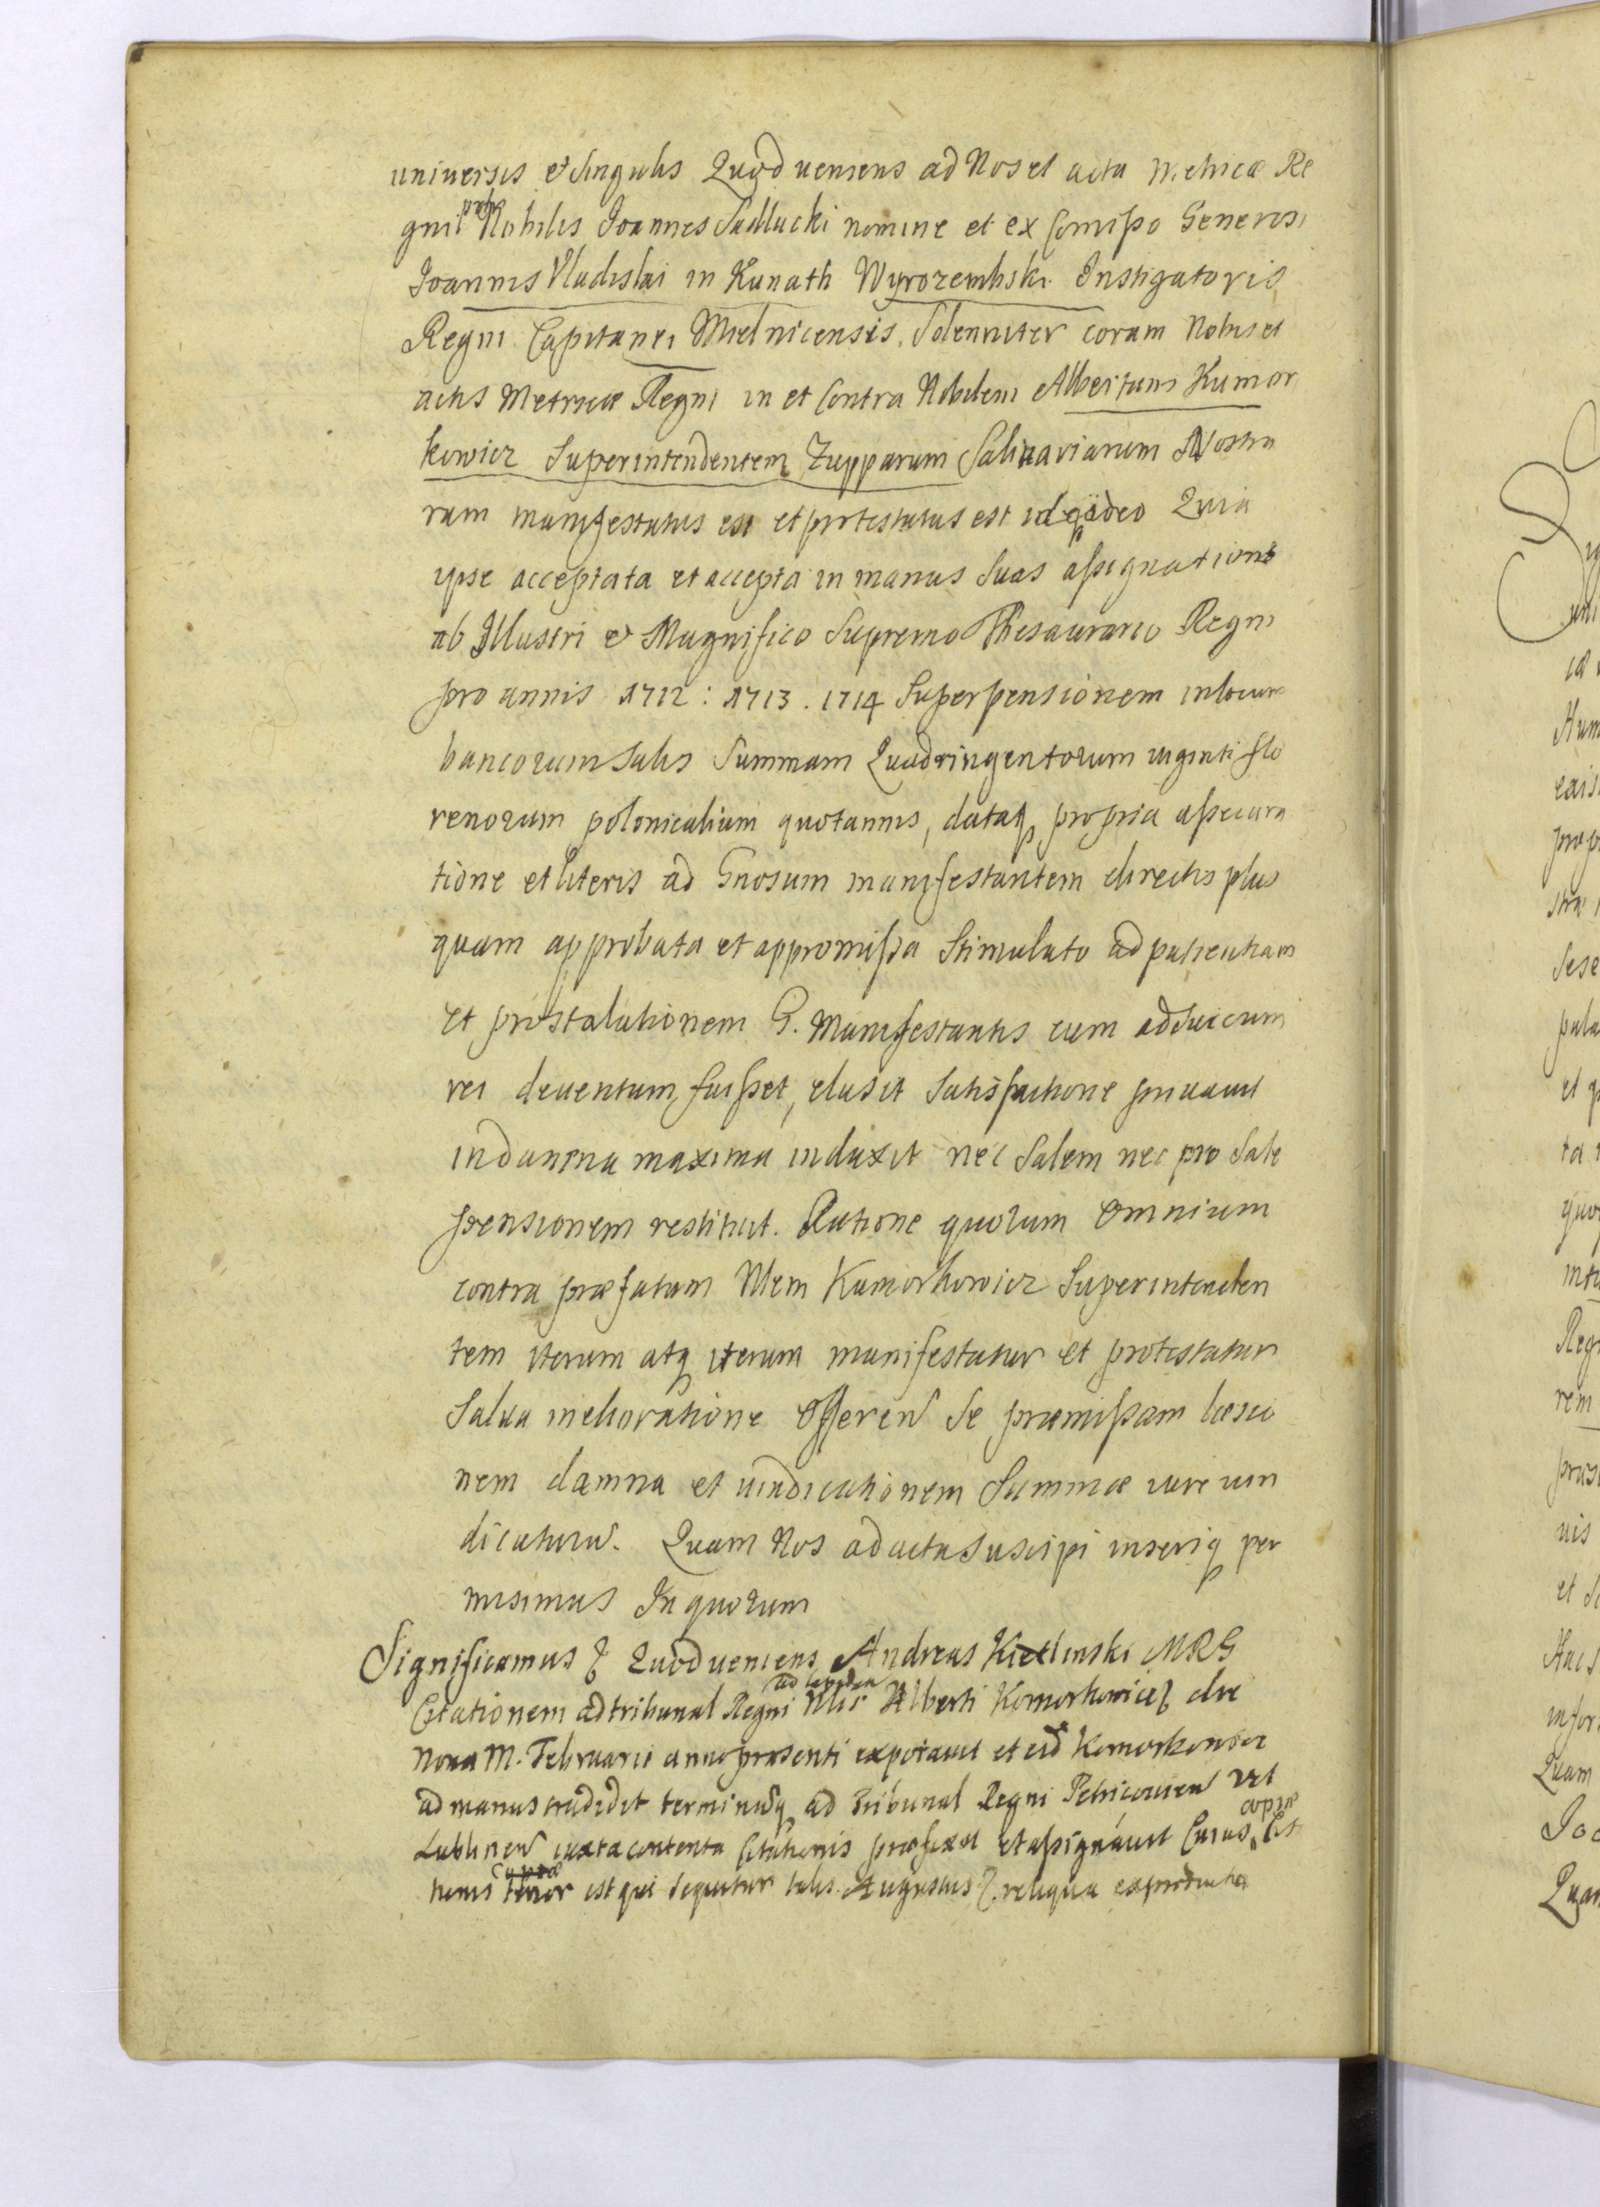 universis et singulis Quod veniens ad Nos et acta Metricæ Re
gni Nobilis Joannes Sadlucki nomine et ex Comisso Generosi
Joannis Vladislai in Kunath Wyrozembski Instigatoris
Regni Capitanei Mielnicensis, Solenniter coram Nobis et
actis Metricæ Regni in et contra Nobilem Albertum Kumor
kowicz Superintendentem Zupparum Salinariarum Nostra
rum manifestatus est et protestatus est ideo Quia
ipse acceptata et accepta in manus suas assignatione
ab Illustri et Magnifico Supremo Thesaurario Regni
pro annis 1712 : 1713 . 1714 Super pensionem in locum
bancorum Salis Summam Quadringentorum viginti flo
renorum polonicalium quotannis, dataq propria assecura
tione et literis ad Gnosum manifestantem directis plus
quam approbata et appromissa Stimulato ad patientiam
et prostalationem G. Manifestantis cum ad
rei deventum fuisset, elusit Satisfactione privavit
in damna maxima induxit nec Salem nec pro Sale
pensionem restituit. Ratione quorum omnium
contra præfatum Nlem Kumorkowicz Superintenden
tem iterum atq iterum manifestatur et protestatur
Salva melioratione Offeren se præmissam læsio
nem damna et vindicationem Summæ iure vin
dicaturu. Quam Nos ad acta suscipi inseriq per
misimus In quorum
Significamus Quod veniens Andreas Kietlinski MRG
ad
Citationem ad tribunal Regni Nlis Alberti Komorkowicz die
Nona M. Februarii anno præsenti exportavit et eid Komorkowicz
ad manus tradidit terminumq ad Tribunal Regni Petricovien vel
copiæ
Lublinen iuxta contenta Citationis præfixit et assignavit Cuius Cit
tionis tenor est qui sequitur talis. Augustus reliqua